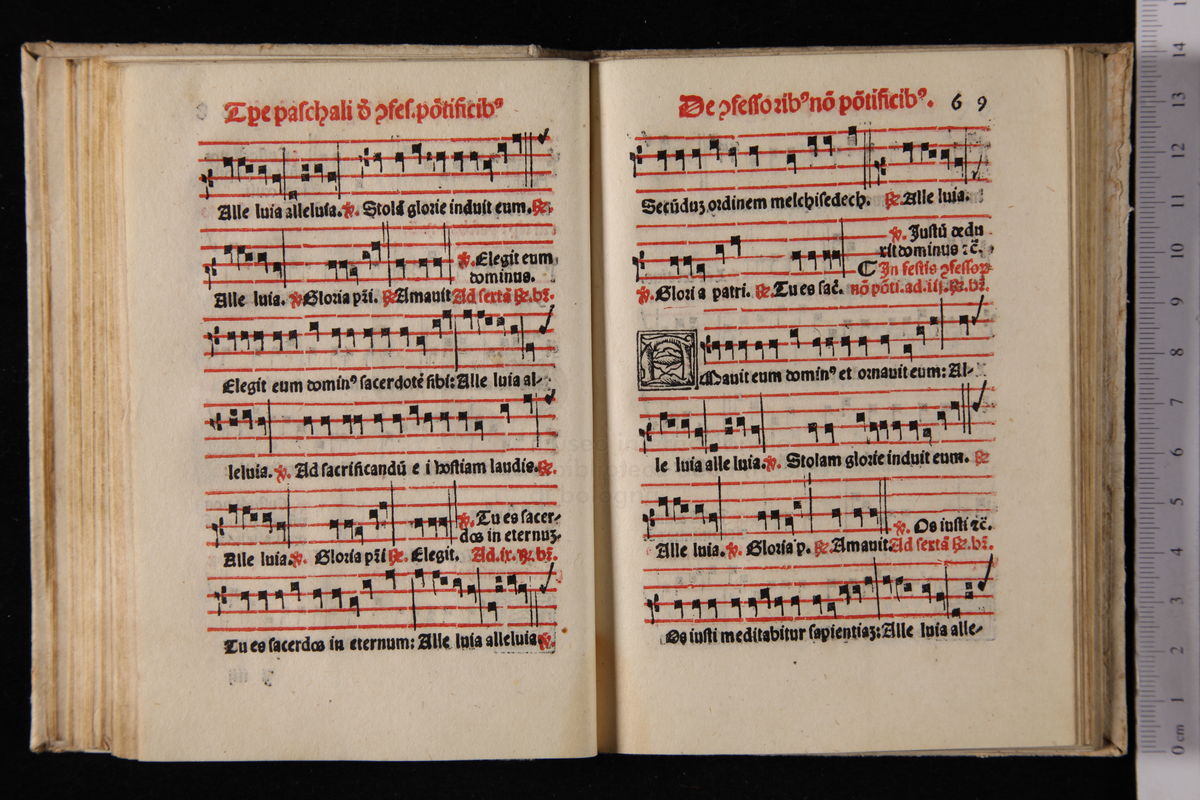 Tpe paschali ð ꝯfes. põtificibꝰ
Alle luia alleluia. ℣. Stolā glorie induit eum. ℟.
℣. Elegit eum
dominus.
Alle luia. ℣ Gloria pr̄i. ℟ Amauit Ad sextā ℟. br̄.
Elegit eum dominꝰ sacerdotē sibi: Alle luia al-
leluia. ℣. Ad sacrificandū e i hostiam laudis. ℟.
℣. Tu es sacer-
dos in eternuꝫ.
Alle luia. ℣. Gloria pr̄i ℟. Elegit. Ad. ix. ℟. br̄.
Tu es sacerdos in eternum: Alle luia alleluia ℣.
De ꝯfessoribꝰ nō põtificibꝰ. 69
Secūduꝫ ordinem melchisedech. ℟. Alle luia.
℣. Justū dedu
xit dominus ⁊c̄.
In festis ꝯfessoꝝ
℣. Glori a patri. ℟. Tu es sac̄. nō põti. ad. iij. ℟. br̄.
AMauit eum dominꝰ et ornauit eum: Al-
le luia alle luia. ℣. Stolam glorie induit eum. ℟
℣. Os iusti ⁊c̄.
Alle luia. ℣. Gloria p. ℟. Amauit Ad sextā ℟. br̄.
Os iusti meditabitur sapientiaꝫ: Alle luia alle-
14
13
12
11
10
9
8
7
6
5
4
3
2
1
0 cm